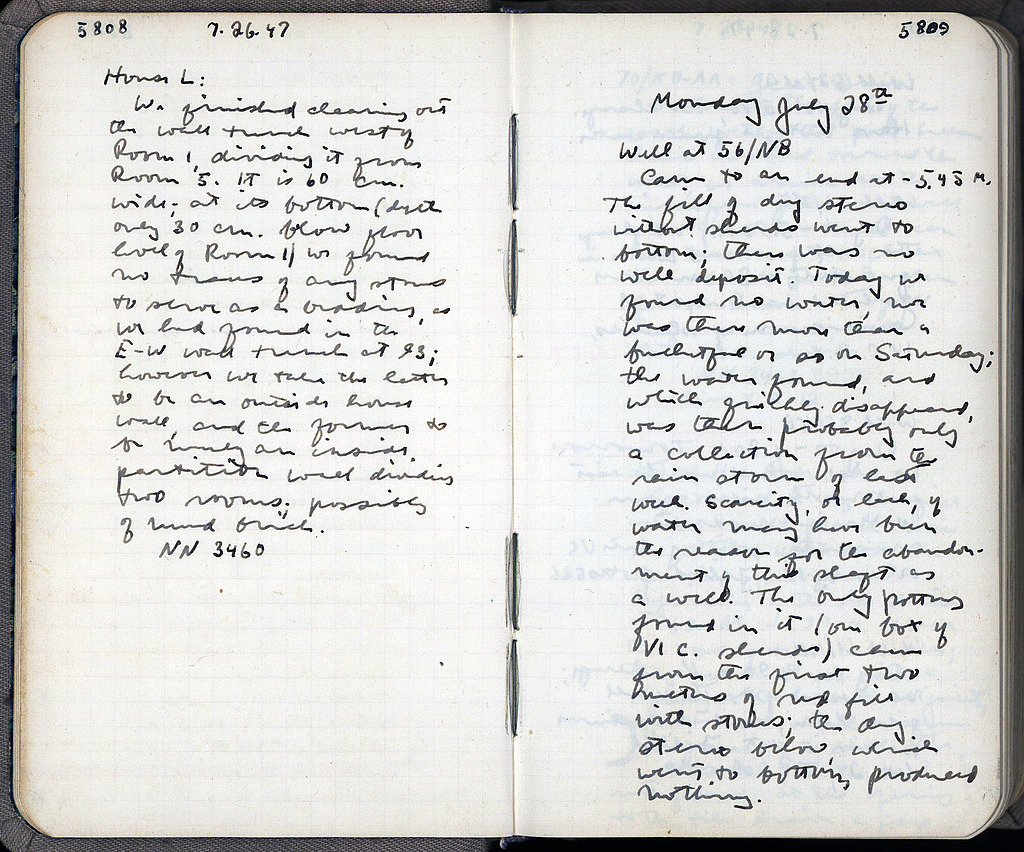 5808 7.26.47
House L:
We finished clearing out
the wall trench west of
Room 1, dividing it from
Room 5. It is 60 cm.
wide; at its bottom (depth
only 30 cm. below floor
level of Room 1) we found
no traces of any stones
to serve as a bedding, as
we had found in the
E-W wall trench at 93;
however we take the latter
to be an outside house
wall, and the former to
be merely an inside,
partition wall dividing
two rooms; possibly
of mud brick.
NN 3460
5809
Monday July 28th
Well at 56/NB
Came to an end at -5.45 M.
The fill of dug stereo
without sherds went to
bottom; there was no
well deposit. Today we
found no water, nor
was there more than a
bucketful or so on Saturday;
the water found, and
which quickly disappeared,
was then probably only
a collection from the
rain storm of last
week. Scarcity, or lack, of
water may have been
the reason for the abandon-
ment of this shaft as
a well. The only pottery
found in it (one box of
VI C. sherds) came
from the first two
meters of red fill
with stones; the dug
stereo below which
went to bottom produced
nothing.